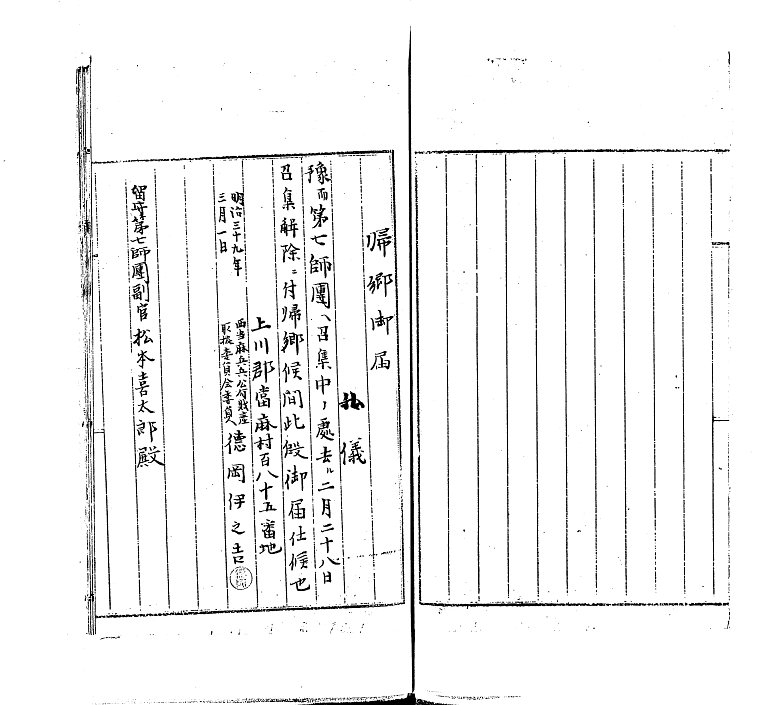 帰郷御届
私儀
豫而第七師團ヘ召集中ノ處去ル二月二十八日
召集解除ニ付帰郷候間此段御届仕候也
上川郡當麻村百八十五番地
西当麻兵公有財産
取扱委員会委員
徳岡伊之吉
明治三十九年
三月一日
留守第七師團副官松本喜太郎殿